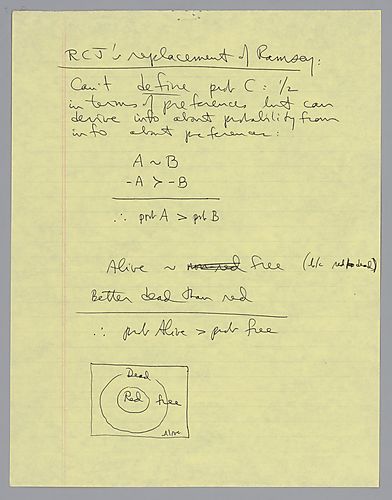 RCJ's replacement of Ramsey:
Can't define prob C = 1/2
in terms of preferences but can
derive info about probability from
info about preference:
A ~ B
-A > -B
∴ prob A > prob B
Alive ~ free (b/c red → dead)
Better dead than red
∴ prob Alive > prob free
Dead
Red free
Alive